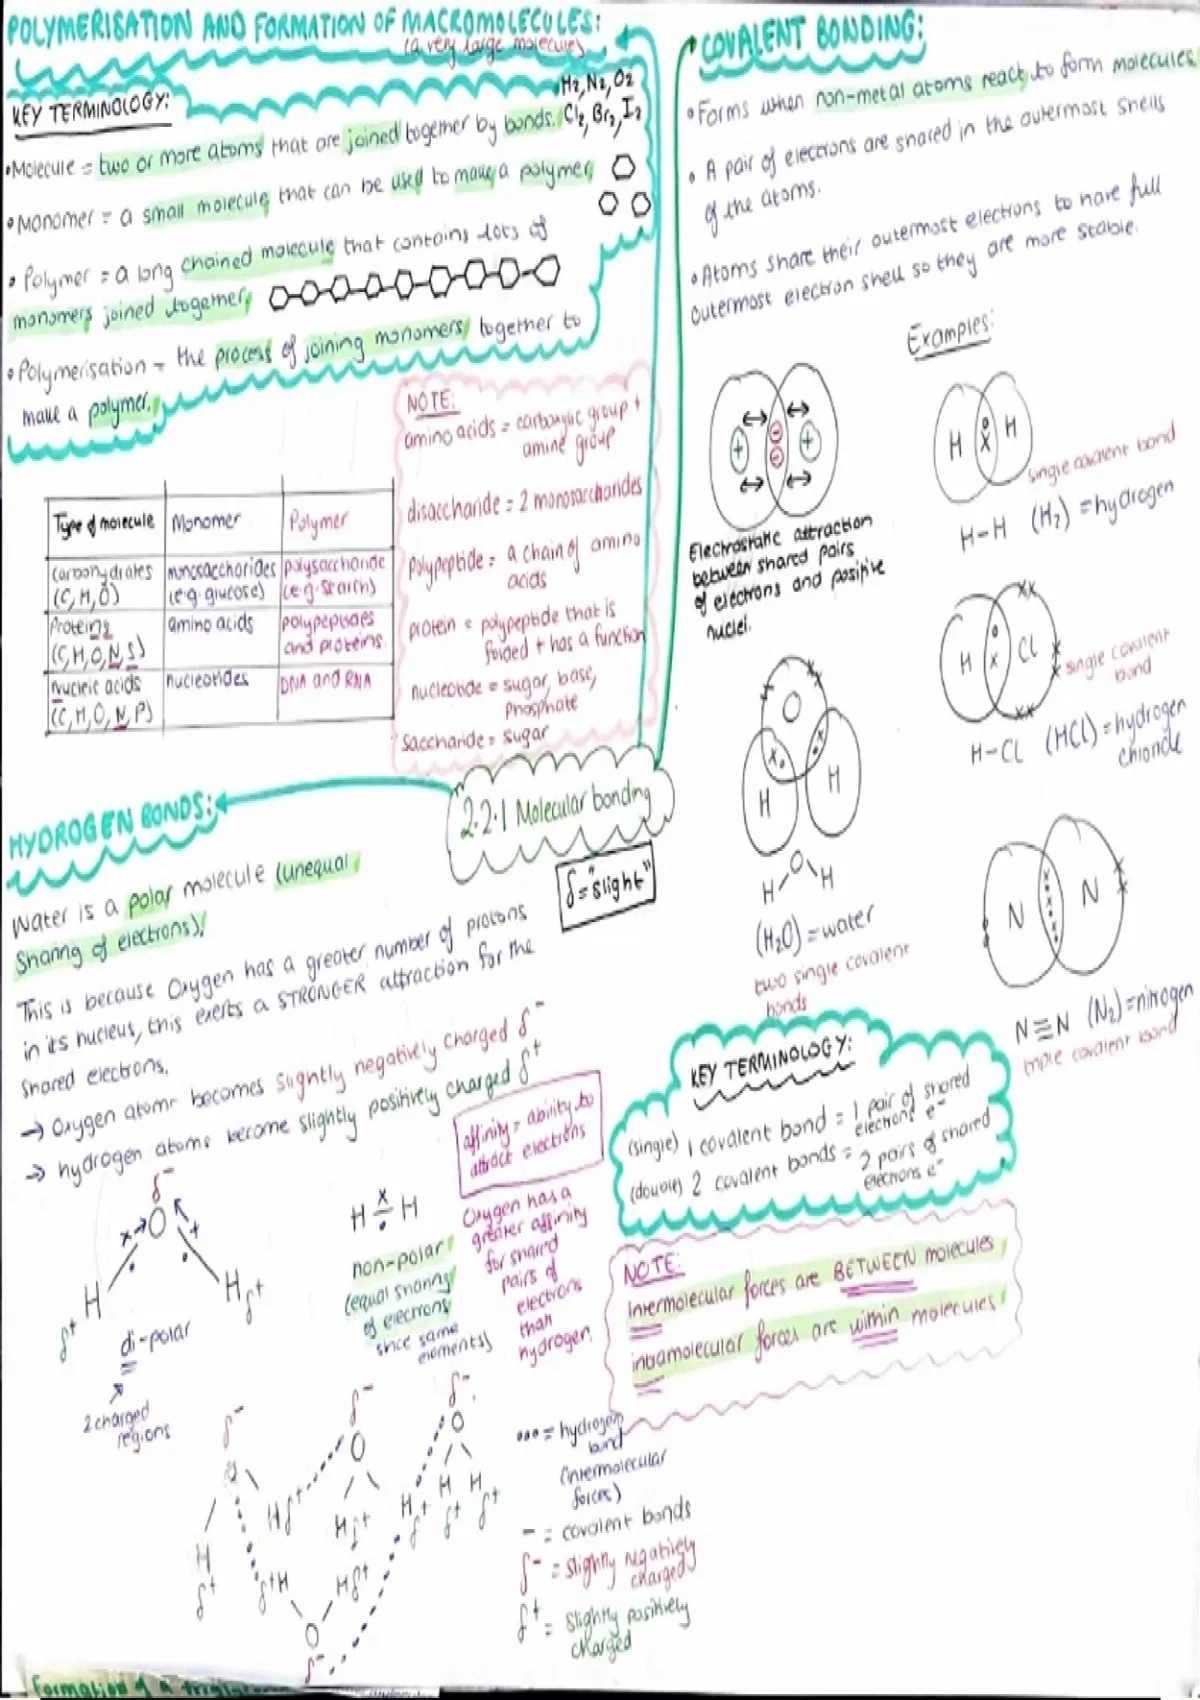 POLYMERISATION AND FORMATION OF MACROMOLECULES:
(a very large molecule)
KEY TERMINOLOGY:
H₂, N₂, O₂
Cl₂, Br₂, I₂
•Molecule = two or more atoms that are joined together by bonds.
•Monomer = a small molecule that can be used to make a polymer
• Polymer = a long chained molecule that contains lots of
monomers joined together
•Polymerisation = the process of joining monomers together to
make a polymer.
NOTE:
amino acids = carboxylic group +
amine group
disaccharide = 2 monosaccharides
polypeptide = a chain of amino
acids
protein = polypeptide that is
folded + has a function
nucleotide = sugar, base,
phosphate
saccharide = sugar
Type of molecule Monomer Polymer
carbohydrates (C,H,O) monosaccharides (e.g. glucose) polysaccharide (e.g. starch)
Proteins (C,H,O,N,S) amino acids polypeptides and proteins
Nucleic acids (C,H,O,N,P) nucleotides DNA and RNA
2.2.1 Molecular bonding
δ = "slight"
COVALENT BONDING:
•Forms when non-metal atoms react to form molecules.
• A pair of electrons are shared in the outermost shells
of the atoms.
•Atoms share their outermost electrons to have full
outermost electron shell so they are more stable.
Examples:
Electrostatic attraction
between shared pairs
of electrons and positive
nuclei.
H H
single covalent bond
H-H (H₂) = hydrogen
H Cl
single covalent
bond
H-Cl (HCl) = hydrogen
chloride
O
H H
O
H H
(H₂O) = water
two single covalent
bonds
N N
N≡N (N₂) = nitrogen
triple covalent bond
KEY TERMINOLOGY:
(single) 1 covalent bond = 1 pair of shared
electrons e⁻
(double) 2 covalent bonds = 2 pairs of shared
electrons e⁻
NOTE:
Intermolecular forces are BETWEEN molecules
intramolecular forces are within molecules
HYDROGEN BONDS:
Water is a polar molecule (unequal
sharing of electrons).
This is because Oxygen has a greater number of protons
in its nucleus, this exerts a STRONGER attraction for the
shared electrons.
→ Oxygen atoms becomes slightly negatively charged δ⁻
→ hydrogen atoms become slightly positively charged δ⁺
affinity = ability to
attract electrons
Oxygen has a
greater affinity
for shared
pairs of
electrons
than
hydrogen.
δ⁻
O
H H
δ⁺ δ⁺
di-polar
2 charged
regions
H H
non-polar
(equal sharing
of electrons
since same
elements)
δ⁻ δ⁻ δ⁻
O O
H Hδ⁺ Hδ⁺ H H H
δ⁺ δ⁺ δ⁺ δ⁺
δ⁺H Hδ⁺
O
δ⁻
••• = hydrogen
bond
(intermolecular
forces)
- = covalent bonds
δ⁻ = slightly negatively
charged
δ⁺ = slightly positively
charged
Formation of a